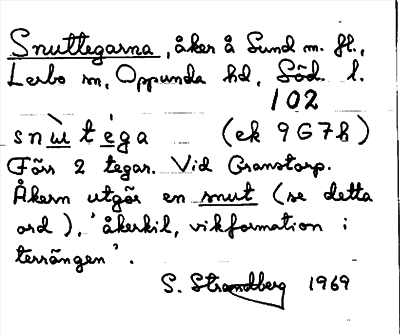 Snuttegarna, åker å Sund m. fl.,
Lerbo sn, Oppunda hd, Söd. l.
102
snùtéga (ek 9G7h)
Förr 2 tegar. Vid Granstorp.
Åkern utgör en snut (se detta
ord), 'åkerkil, vikformation i
terrängen'.
S. Strandberg 1969